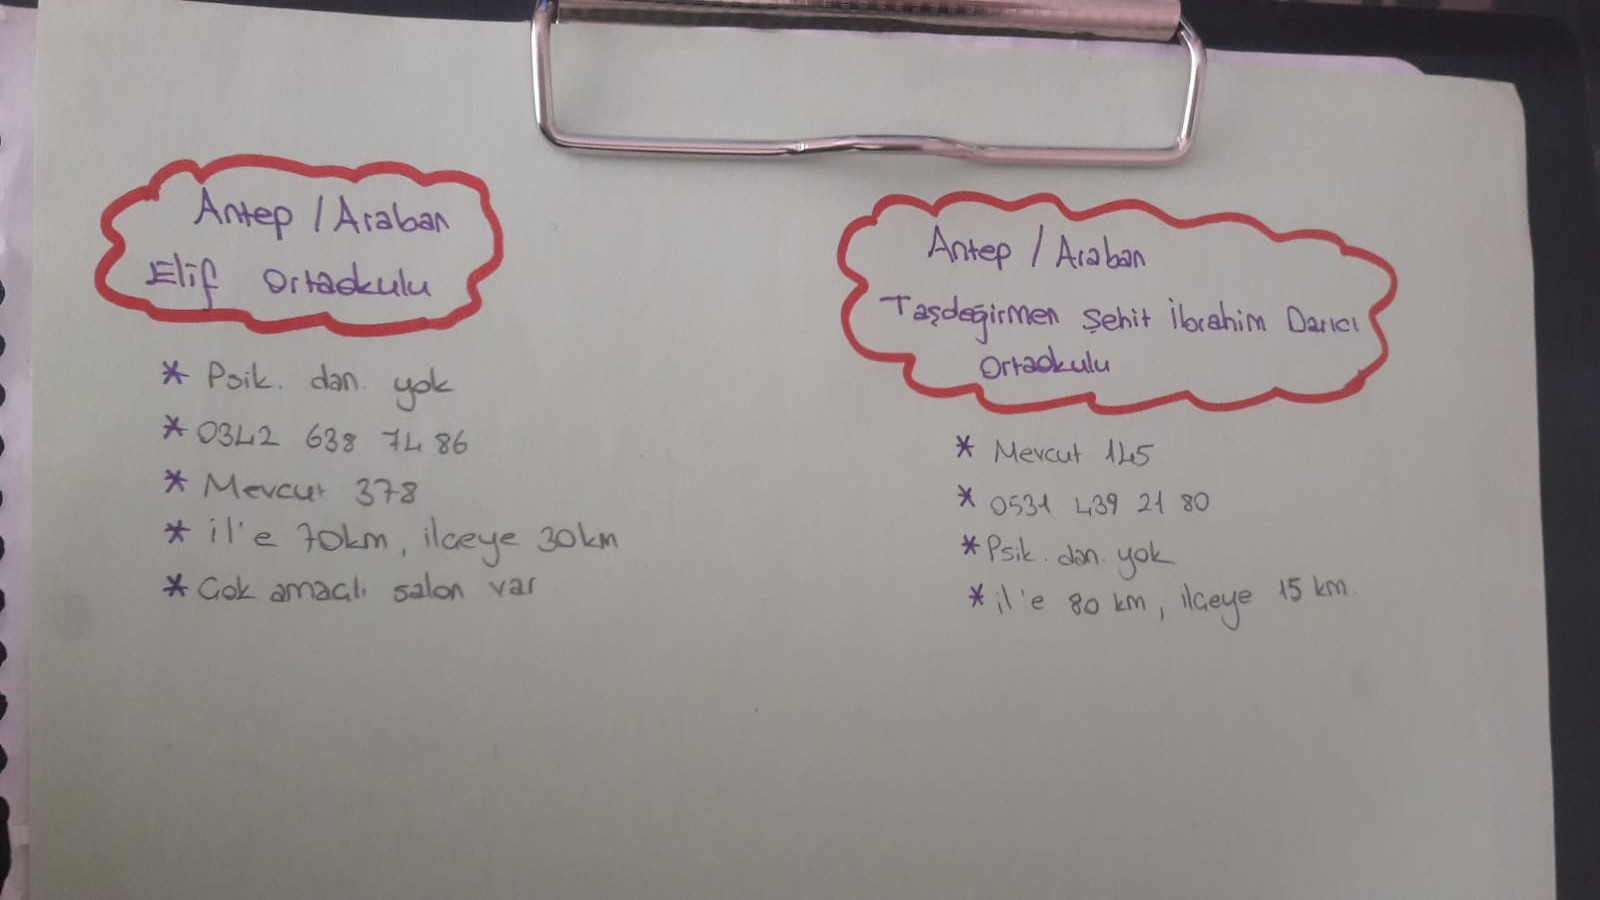 Antep / Araban
Elif Ortaokulu
* Psik. dan. yok
* 0342 638 74 86
* Mevcut 378
* il'e 70km, ilçeye 30km
* Çok amaçlı salon var
Antep / Araban
Taşdeğirmen Şehit İbrahim Darıcı
Ortaokulu
* Mevcut 145
* 0531 439 21 80
* Psik. dan. yok
* il'e 80 km, ilçeye 15 km.